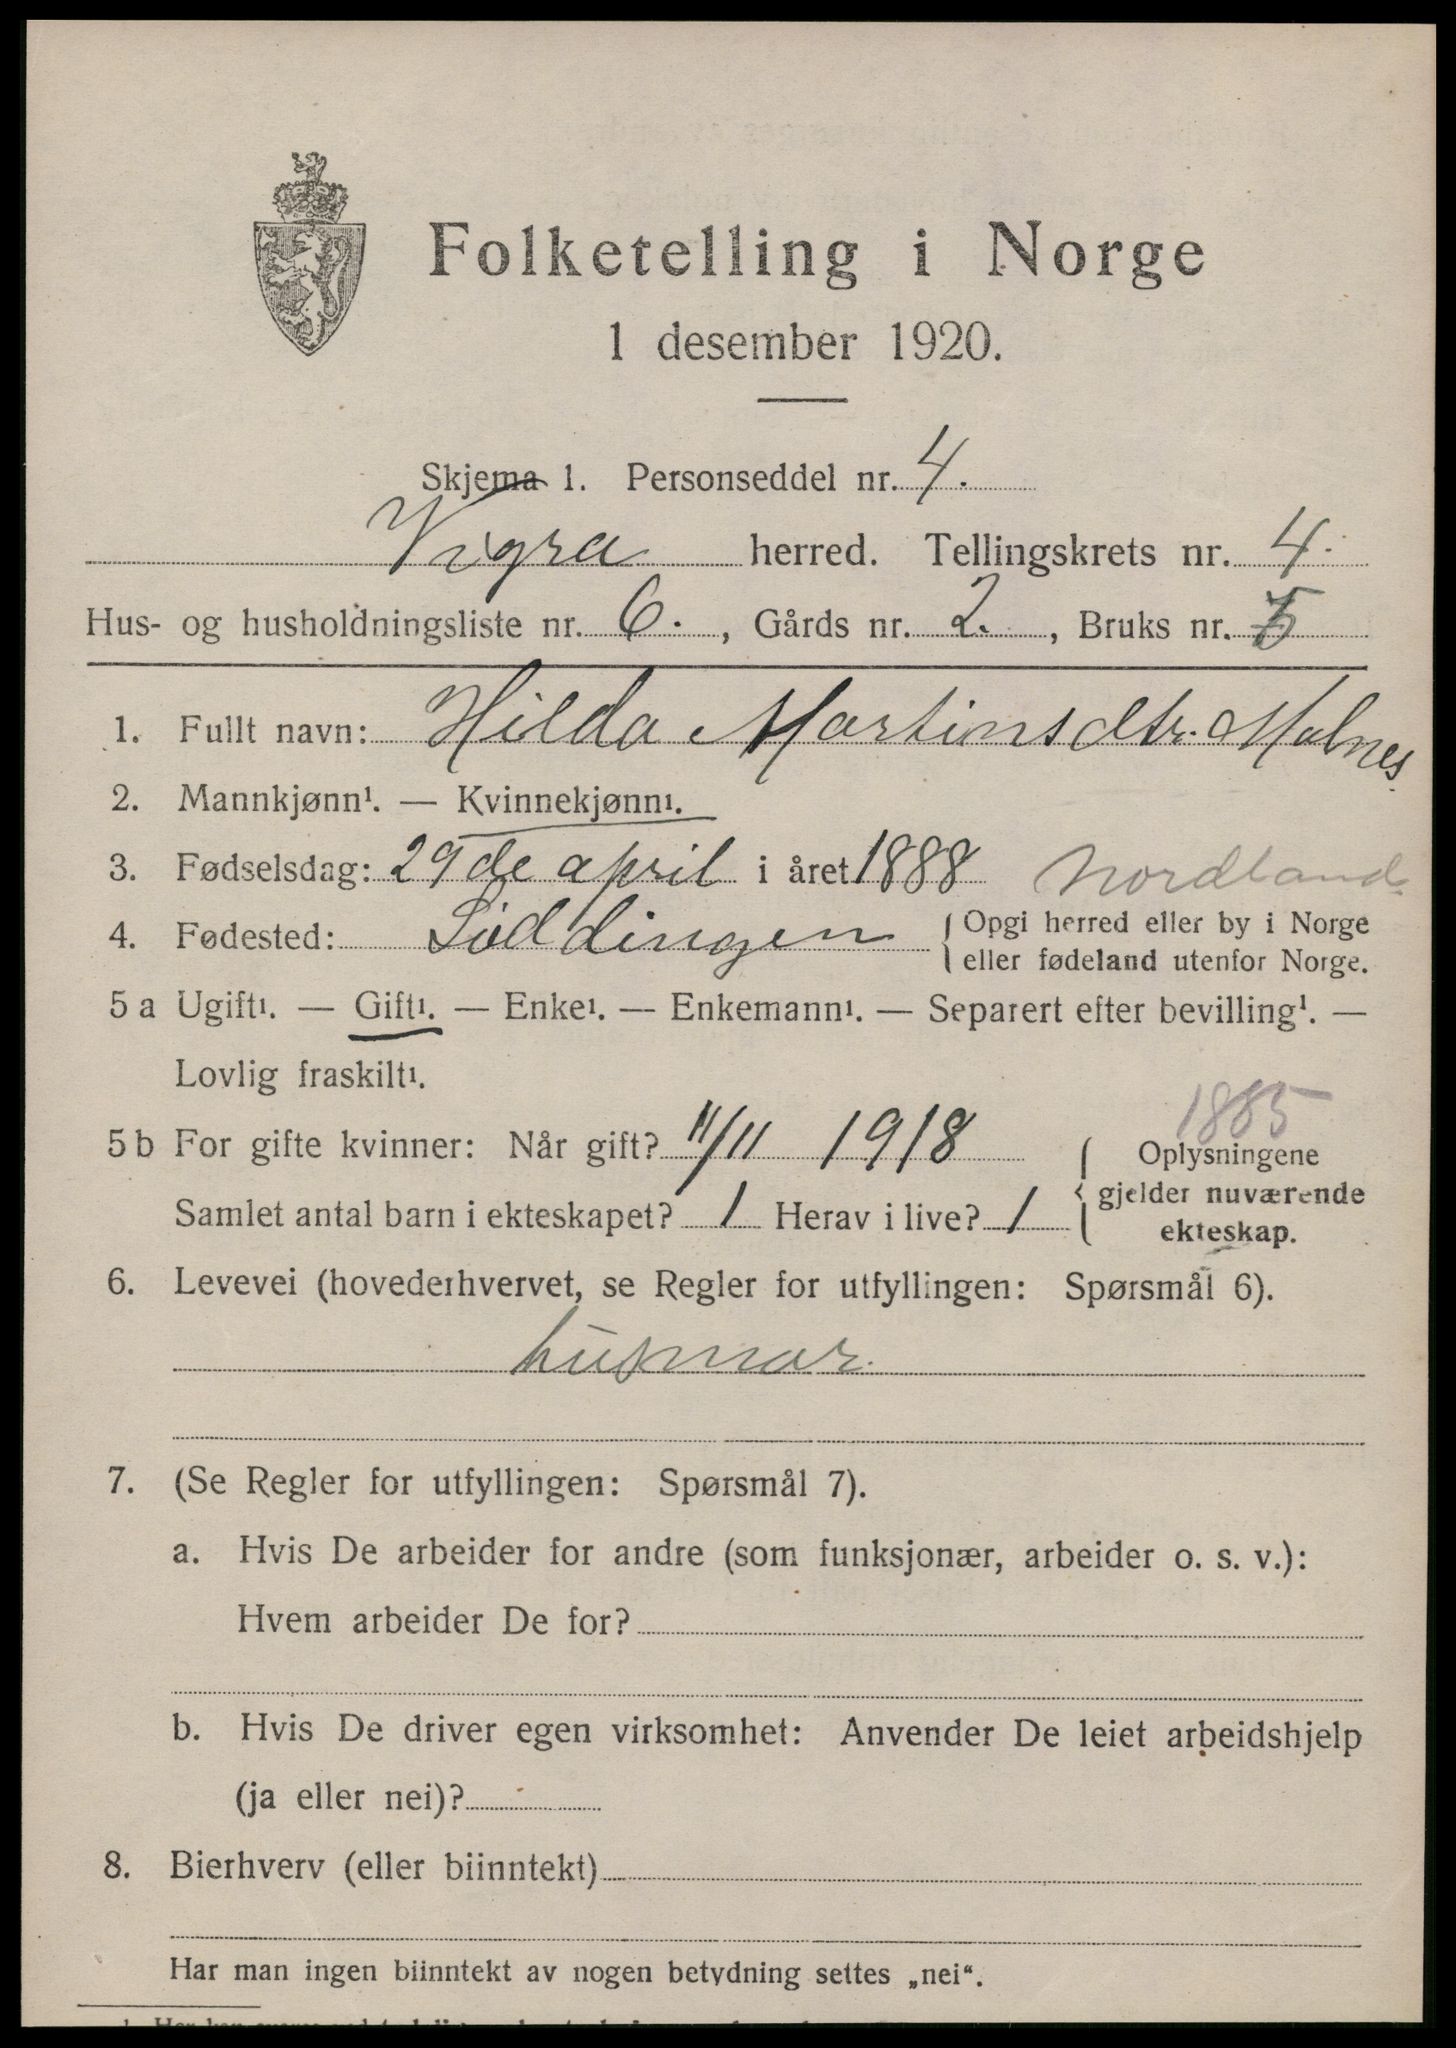 Folketelling i Norge
1 desember 1920.
Skjema 1. Personseddel nr. 4.
Vigra herred. Tellingskrets nr. 4.
Hus- og husholdningsliste nr. 6. , Gårds nr. 2. , Bruks nr. 5
1. Fullt navn: Hilda Martinsdtr. Molnes
2. Mannkjønn¹. — Kvinnekjønn¹.
3. Fødselsdag: 29de april i året 1888 Nordland.
4. Fødested: Löddingen { Opgi herred eller by i Norge
eller fødeland utenfor Norge.
5 a Ugift¹. — Gift¹. — Enke¹. — Enkemann¹. — Separert efter bevilling¹. —
Lovlig fraskilt¹.
1885
5 b For gifte kvinner: Når gift? 11/11 1918 { Oplysningene
gjelder nuværende
Samlet antal barn i ekteskapet? 1 Herav i live? 1
ekteskap.
6. Levevei (hovederhvervet, se Regler for utfyllingen: Spørsmål 6).
husmor.
7. (Se Regler for utfyllingen: Spørsmål 7).
a. Hvis De arbeider for andre (som funksjonær, arbeider o. s. v.):
Hvem arbeider De for?
b. Hvis De driver egen virksomhet: Anvender De leiet arbeidshjelp
(ja eller nei)?
8. Bierhverv (eller biinntekt)
Har man ingen biinntekt av nogen betydning settes „nei“.